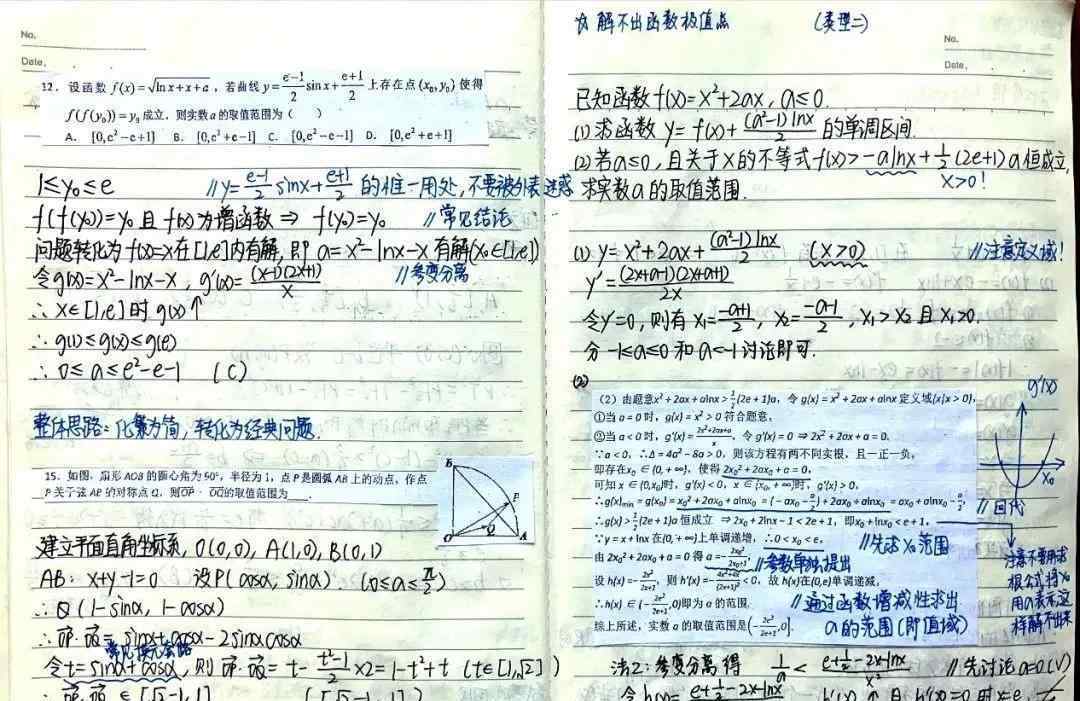 No.
Date.
12. 设函数 f(x)=√(lnx+x+a)，若曲线 y=(e-1)/2 sinx+(e+1)/2 上存在点(x₀,y₀)使得
f(f(y₀))=y₀成立，则实数a的取值范围为（ ）
A. [0,e²-e+1] B. [0,e²+e-1] C. [0,e²-e-1] D. [0,e²+e+1]
1≤y₀≤e //y=(e-1)/2 sinx+(e+1)/2 的惟一用处,不要被外表迷惑
f(f(y₀))=y₀ 且 f(x)为增函数 ⇒ f(y₀)=y₀ //常见结论
问题转化为f(x)=x在[1,e]内有解,即 a=x²-lnx-x 有解(x₀∈[1,e])
令g(x)=x²-lnx-x, g'(x)=(x-1)(2x+1)/x //参变分离
∴x∈[1,e]时g(x)↑
∴g(1)≤g(x)≤g(e)
∴0≤a≤e²-e-1 (C)
整体思路:化繁为简,转化为经典问题.
15. 如图，扇形AOB的圆心角为90°，半径为1，点P是圆弧AB上的动点，作点
P关于弦AB的对称点Q，则OP·OQ的取值范围为
B
P
Q
O
A
建立平面直角坐标系, O(0,0), A(1,0), B(0,1)
AB: x+y-1=0 设P(cosα, sinα) (0≤α≤π/2)
∴Q(1-sinα, 1-cosα)
∴OP·OQ=sinα+cosα-2sinαcosα
常见换元套路
令t=sinα+cosα, 则 OP·OQ=t-(t²-1)/2×2=1-t²+t (t∈[1,√2])
∴OP·OQ∈[√2-1,1] ([√2-1,1])
☆ 解不出函数极值点 (类型二)
No.
Date.
已知函数f(x)=x²+2ax, a≤0.
(1)求函数 y=f(x)+(a²-1)lnx/2 的单调区间.
(2)若a≤0,且关于x的不等式f(x)>-alnx+½(2e+1)a恒成立,
x>0!
求实数a的取值范围.
(1) y=x²+2ax+(a²-1)lnx/2 (x>0) //注意定义域!
y'=(2x+a-1)(2x+a+1)/2x
令y'=0, 则有x₁=(-a+1)/2, x₂=(-a-1)/2, x₁>x₂ 且x₁>0.
分-1≤a≤0和a<-1讨论即可.
(2)
（2）由题意x²+2ax+alnx>½(2e+1)a，令g(x)=x²+2ax+alnx定义域{x|x>0}，
①当a=0时，g(x)=x²>0符合题意，
②当a<0时，g'(x)=(2x²+2ax+a)/x，令g'(x)=0⇒2x²+2ax+a=0，
∵a<0，∴Δ=4a²-8a>0，则该方程有两不同实根，且一正一负，
即存在x₀∈(0,+∞)，使得2x₀²+2ax₀+a=0，
可知x∈(0,x₀)时，g'(x)<0，x∈(x₀,+∞)时，g'(x)>0，
∴g(x)min=g(x₀)=x₀²+2ax₀+alnx₀=(-ax₀-a/2)+2ax₀+alnx₀=ax₀+alnx₀-a/2，
//回代
∴g(x)>½(2e+1)a恒成立⇒2x₀+2lnx₀-1<2e+1，即x₀+lnx₀<e+1，
∵y=x+lnx在(0,+∞)上单调递增，∴0<x₀<e， //先求x₀范围
由2x₀²+2ax₀+a=0得a=-2x₀²/(2x₀+1)， //参数单独提出
设h(x)=-2x²/(2x+1)，则h'(x)=-(4x²+4x)/(2x+1)²<0，故h(x)在(0,e)单调递减，
∴h(x)∈(-2e²/(2e+1),0)即为a的范围. //通过函数增减性求出
综上所述，实数a的取值范围是(-2e²/(2e+1),0]. a的范围(即值域)
g'(x)
x₀
注意不要用求
根公式将x₀
用a表示,这
样解不出来
法2:参变分离得 1/a<(e+½-2x-lnx)/x² //先讨论a=0(√)
令h(x)=(e+½-2x-lnx)